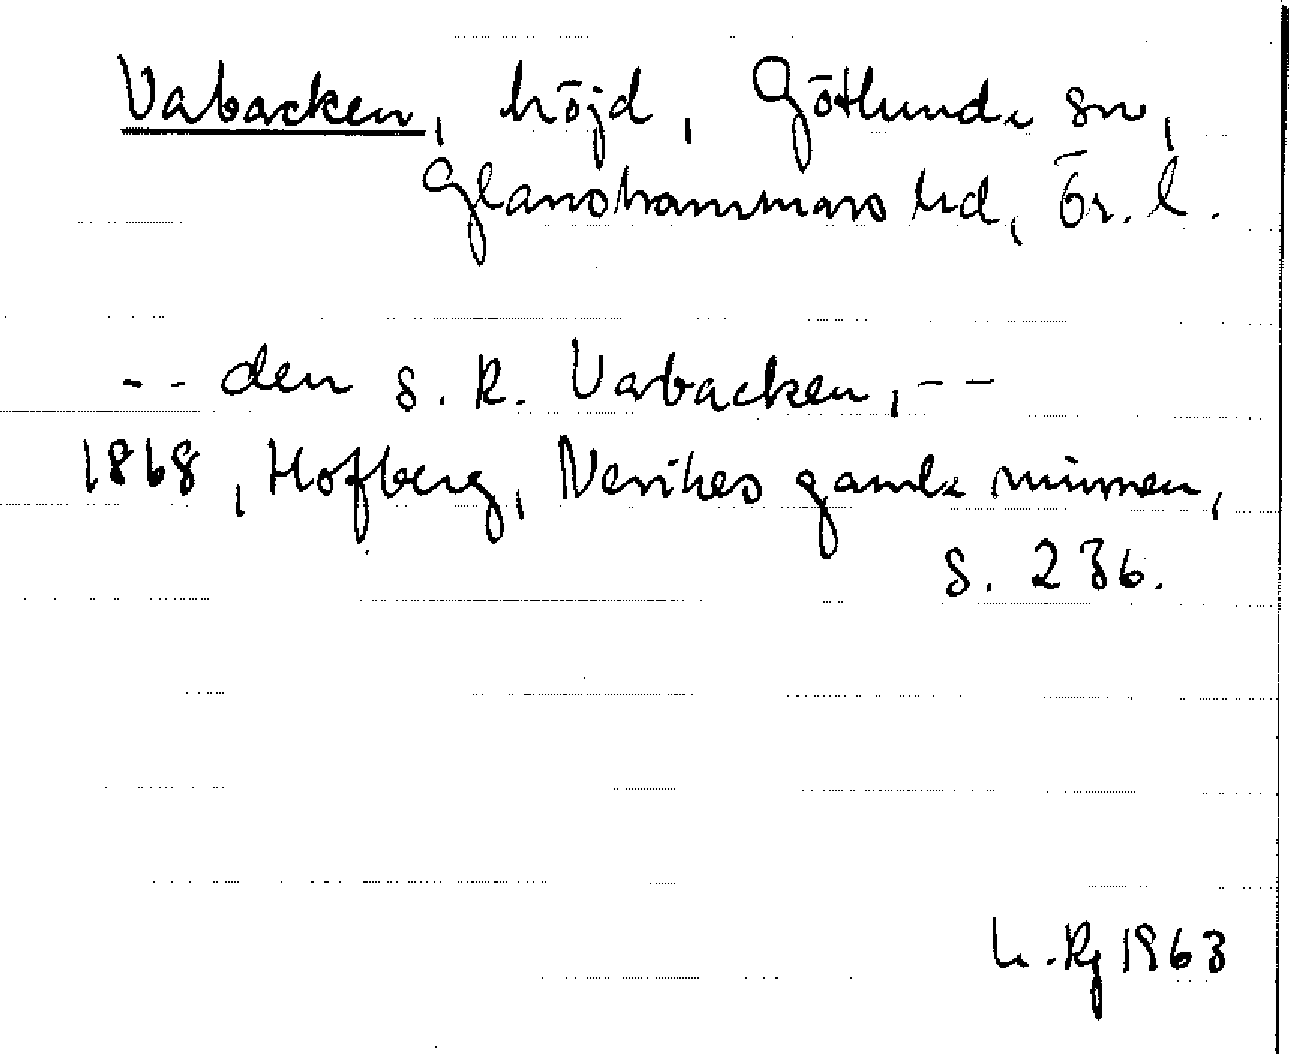 Vabacken, höjd, Götlunda sn,
Glanshammars hd, Ör. l.
-- den s. k. Vabacken, --
1868, Hofberg, Nerikes gamla minnen,
s. 236.
1963